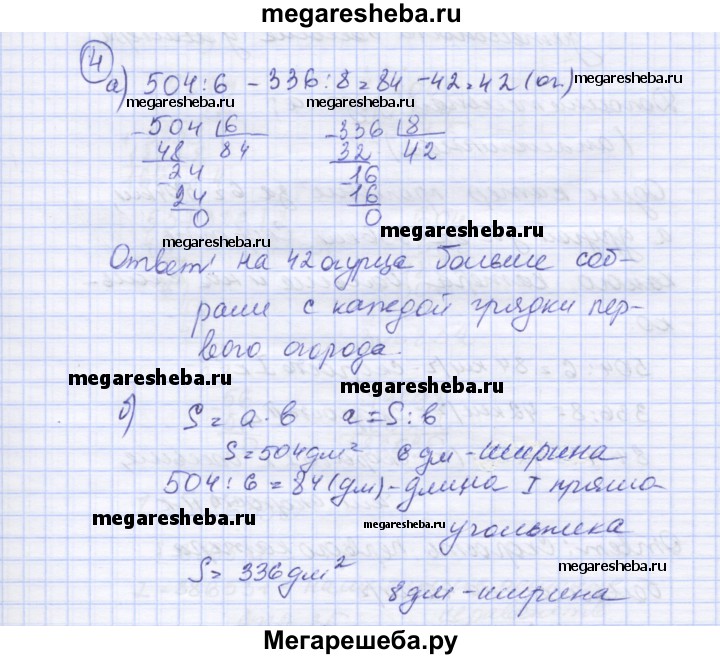 megaresheba.ru
4
а) 504:6 - 336:8 = 84 - 42 = 42 (ог)
megaresheba.ru
megaresheba.ru megaresheba.ru
504 6 336 8
48 84 32 42
24 16
24 16
0 0
megaresheba.ru
megaresheba.ru
Ответ: на 42 огурца больше соб-
рали с каждой грядки пер-
вого огорода.
megaresheba.ru megaresheba.ru
б) S = a · b a = S : b
S = 504 дм² 6 дм - ширина
504 : 6 = 84 (дм) - длина I прямо
megaresheba.ru megaresheba.ru
угольника
S = 336 дм² megaresheba.ru
8 дм - ширина
Мегарешеба.ру